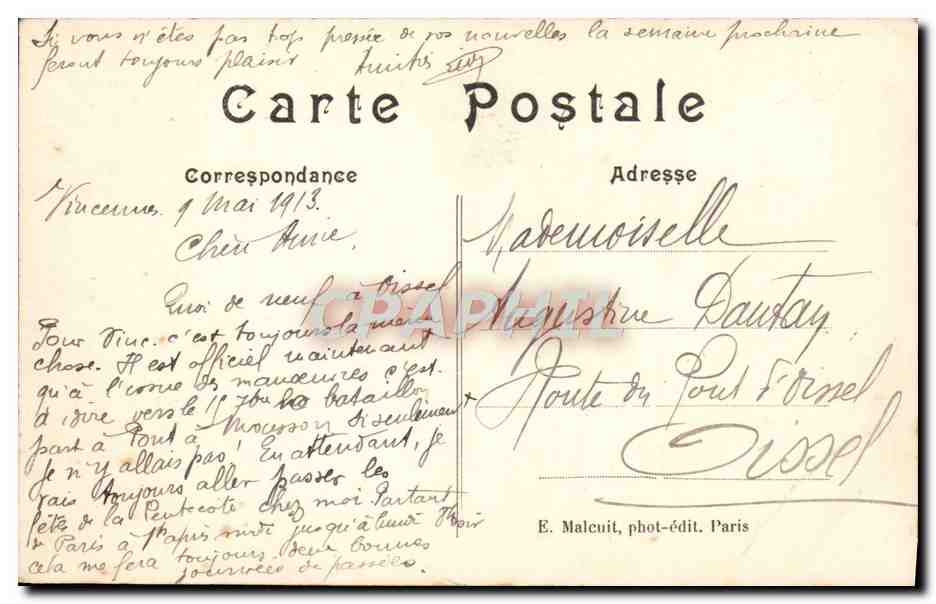 Si vous n'êtes pas trop pressée de vos nouvelles la semaine prochaine
feront toujours plaisir Amitiés
Carte Postale
Correspondance
Adresse
Vincennes 9 Mai 1913.
Chère Amie,
Quoi de neuf à Oissel
Pour Vinc. c'est toujours la même
chose. Il est officiel maintenant
qu'à l'issue des manœuvres c'est-
à dire vers le bataillon
part à Pont à Mousson si seulement
je n'y allais pas! En attendant, je
vais toujours aller passer les
fêtes de la Pentecôte chez moi Partant
de Paris à 1h après midi jusqu'à lundi soir
cela me fera toujours deux bonnes
journées de passées.
Mademoiselle
Augustine Dautay
Route du Pont d'Oissel
Oissel
CPAPHIL
E. Malcuit, phot-édit. Paris